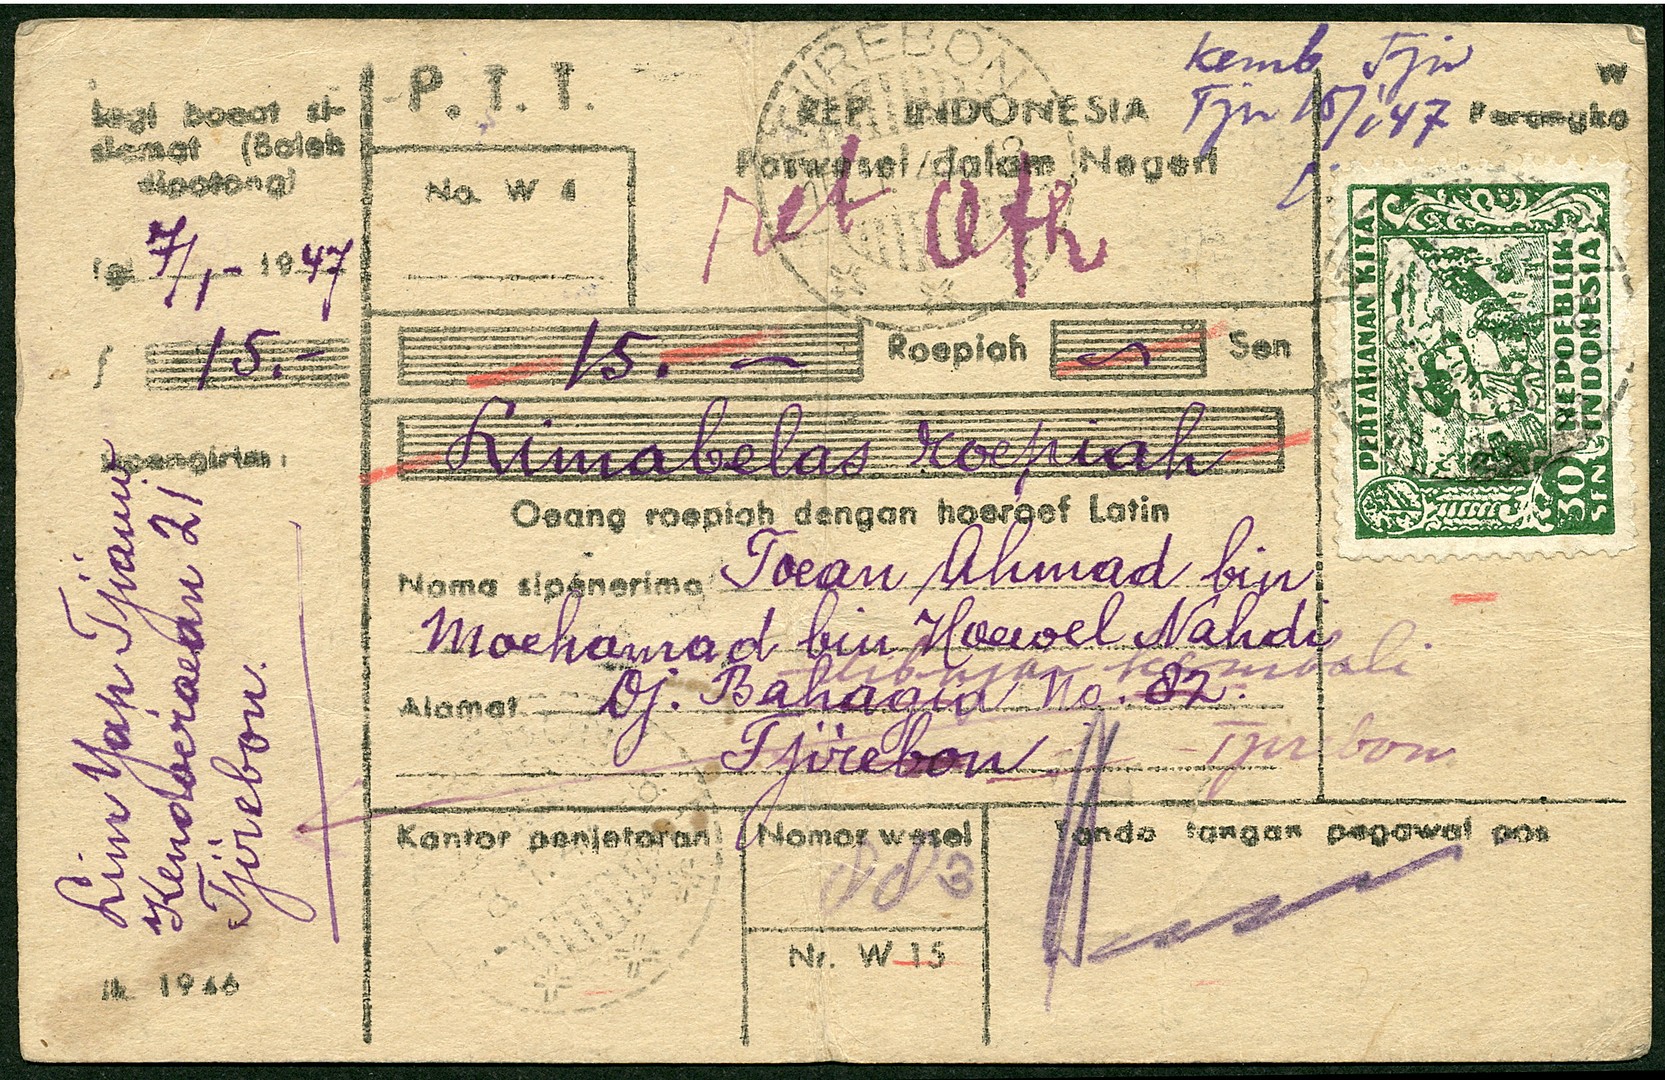 bagi boeat si-
alamat (Boleh
dipotong)
Tgl 7/1- 1947
f 15.-
Sipengirim:
Lim Yap Tjiauw
Kendoeroean 21
Tjirebon.
1946
P. T. T.
No. W 4
REP. INDONESIA
Poswesel dalam Negeri
TJIREBON
ret afz
Kemb Tjn
Tjn 15/1 47
W
Perangko
PERTAHANAN KITA
REPOEBLIK
INDONESIA
30
SEN
15.- Roepiah Sen
Limabelas roepiah
Oeang roepiah dengan hoeroef Latin
Nama sipenerima Toean Ahmad bin
Moehamad bin Hoewel Nahdi
kembali
Alamat Dj. Bahagia No. 82.
Tjirebon
Tjirebon
Kantor penjetoran
Nomor wesel
883
Nr. W 15
Tanda tangan pegawai pos